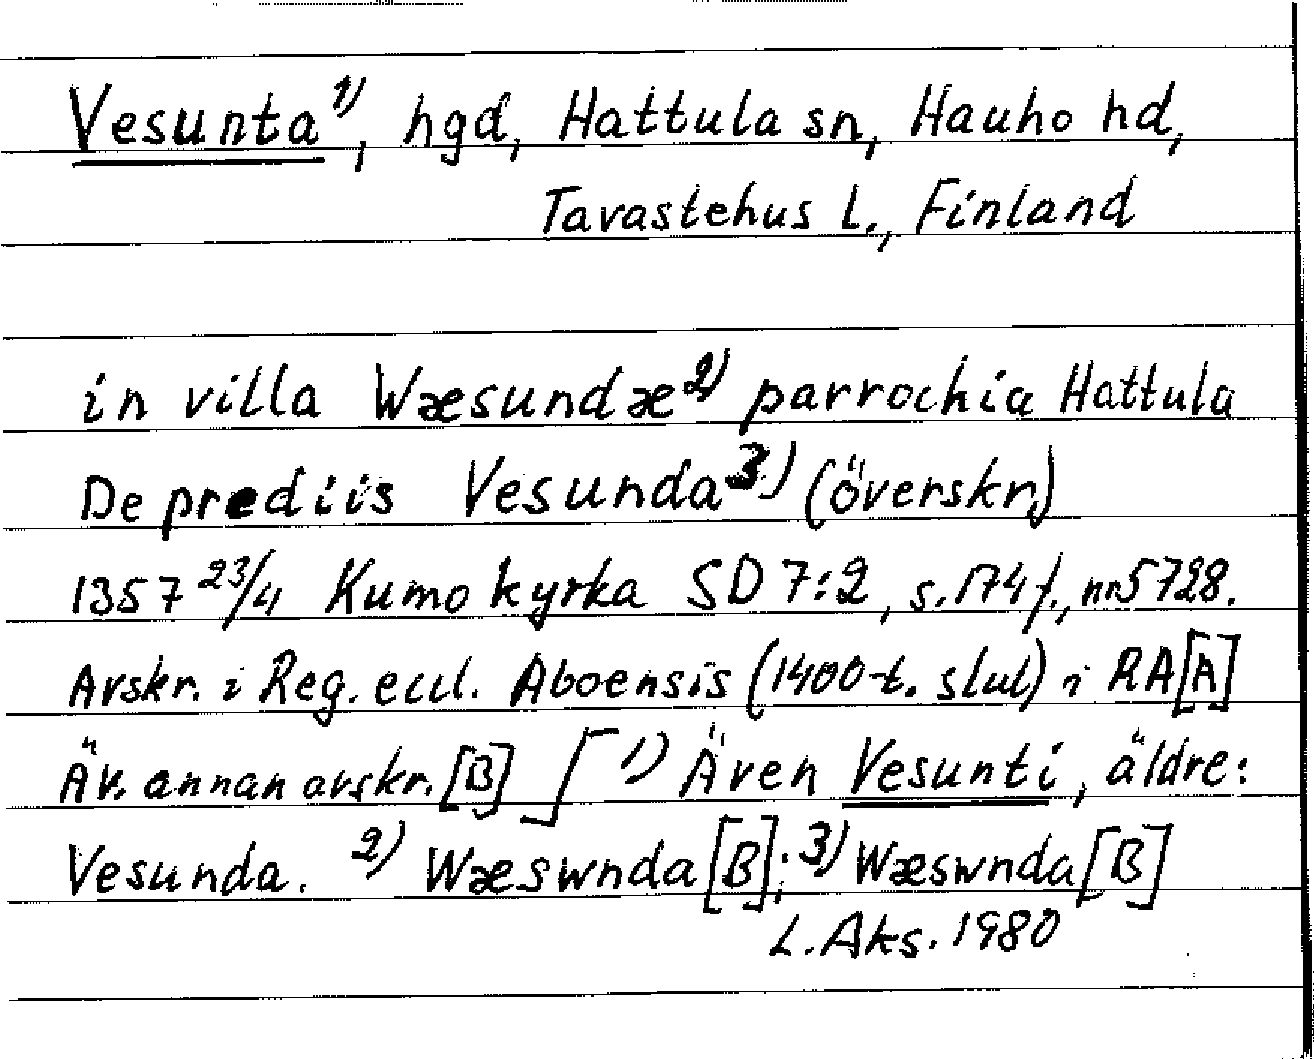 Vesunta¹⁾, hgd, Hattula sn, Hauho hd,
Tavastehus L., Finland
in villa Wæsundæ²⁾ parrochia Hattula
De prediis Vesunda³⁾ (överskr.)
1357 23/4 Kumo kyrka SD 7:2, s. 174 f., nr 5728.
Avskr. i Reg. eccl. Aboensis (1400-t. slut) i RA [A]
Äv. annan avskr. [B] ⌡⌈ ¹⁾ Även Vesunti, äldre:
Vesunda. ²⁾ Wæswnda [B]; ³⁾ Wæswnda [B]
L. Aks. 1980